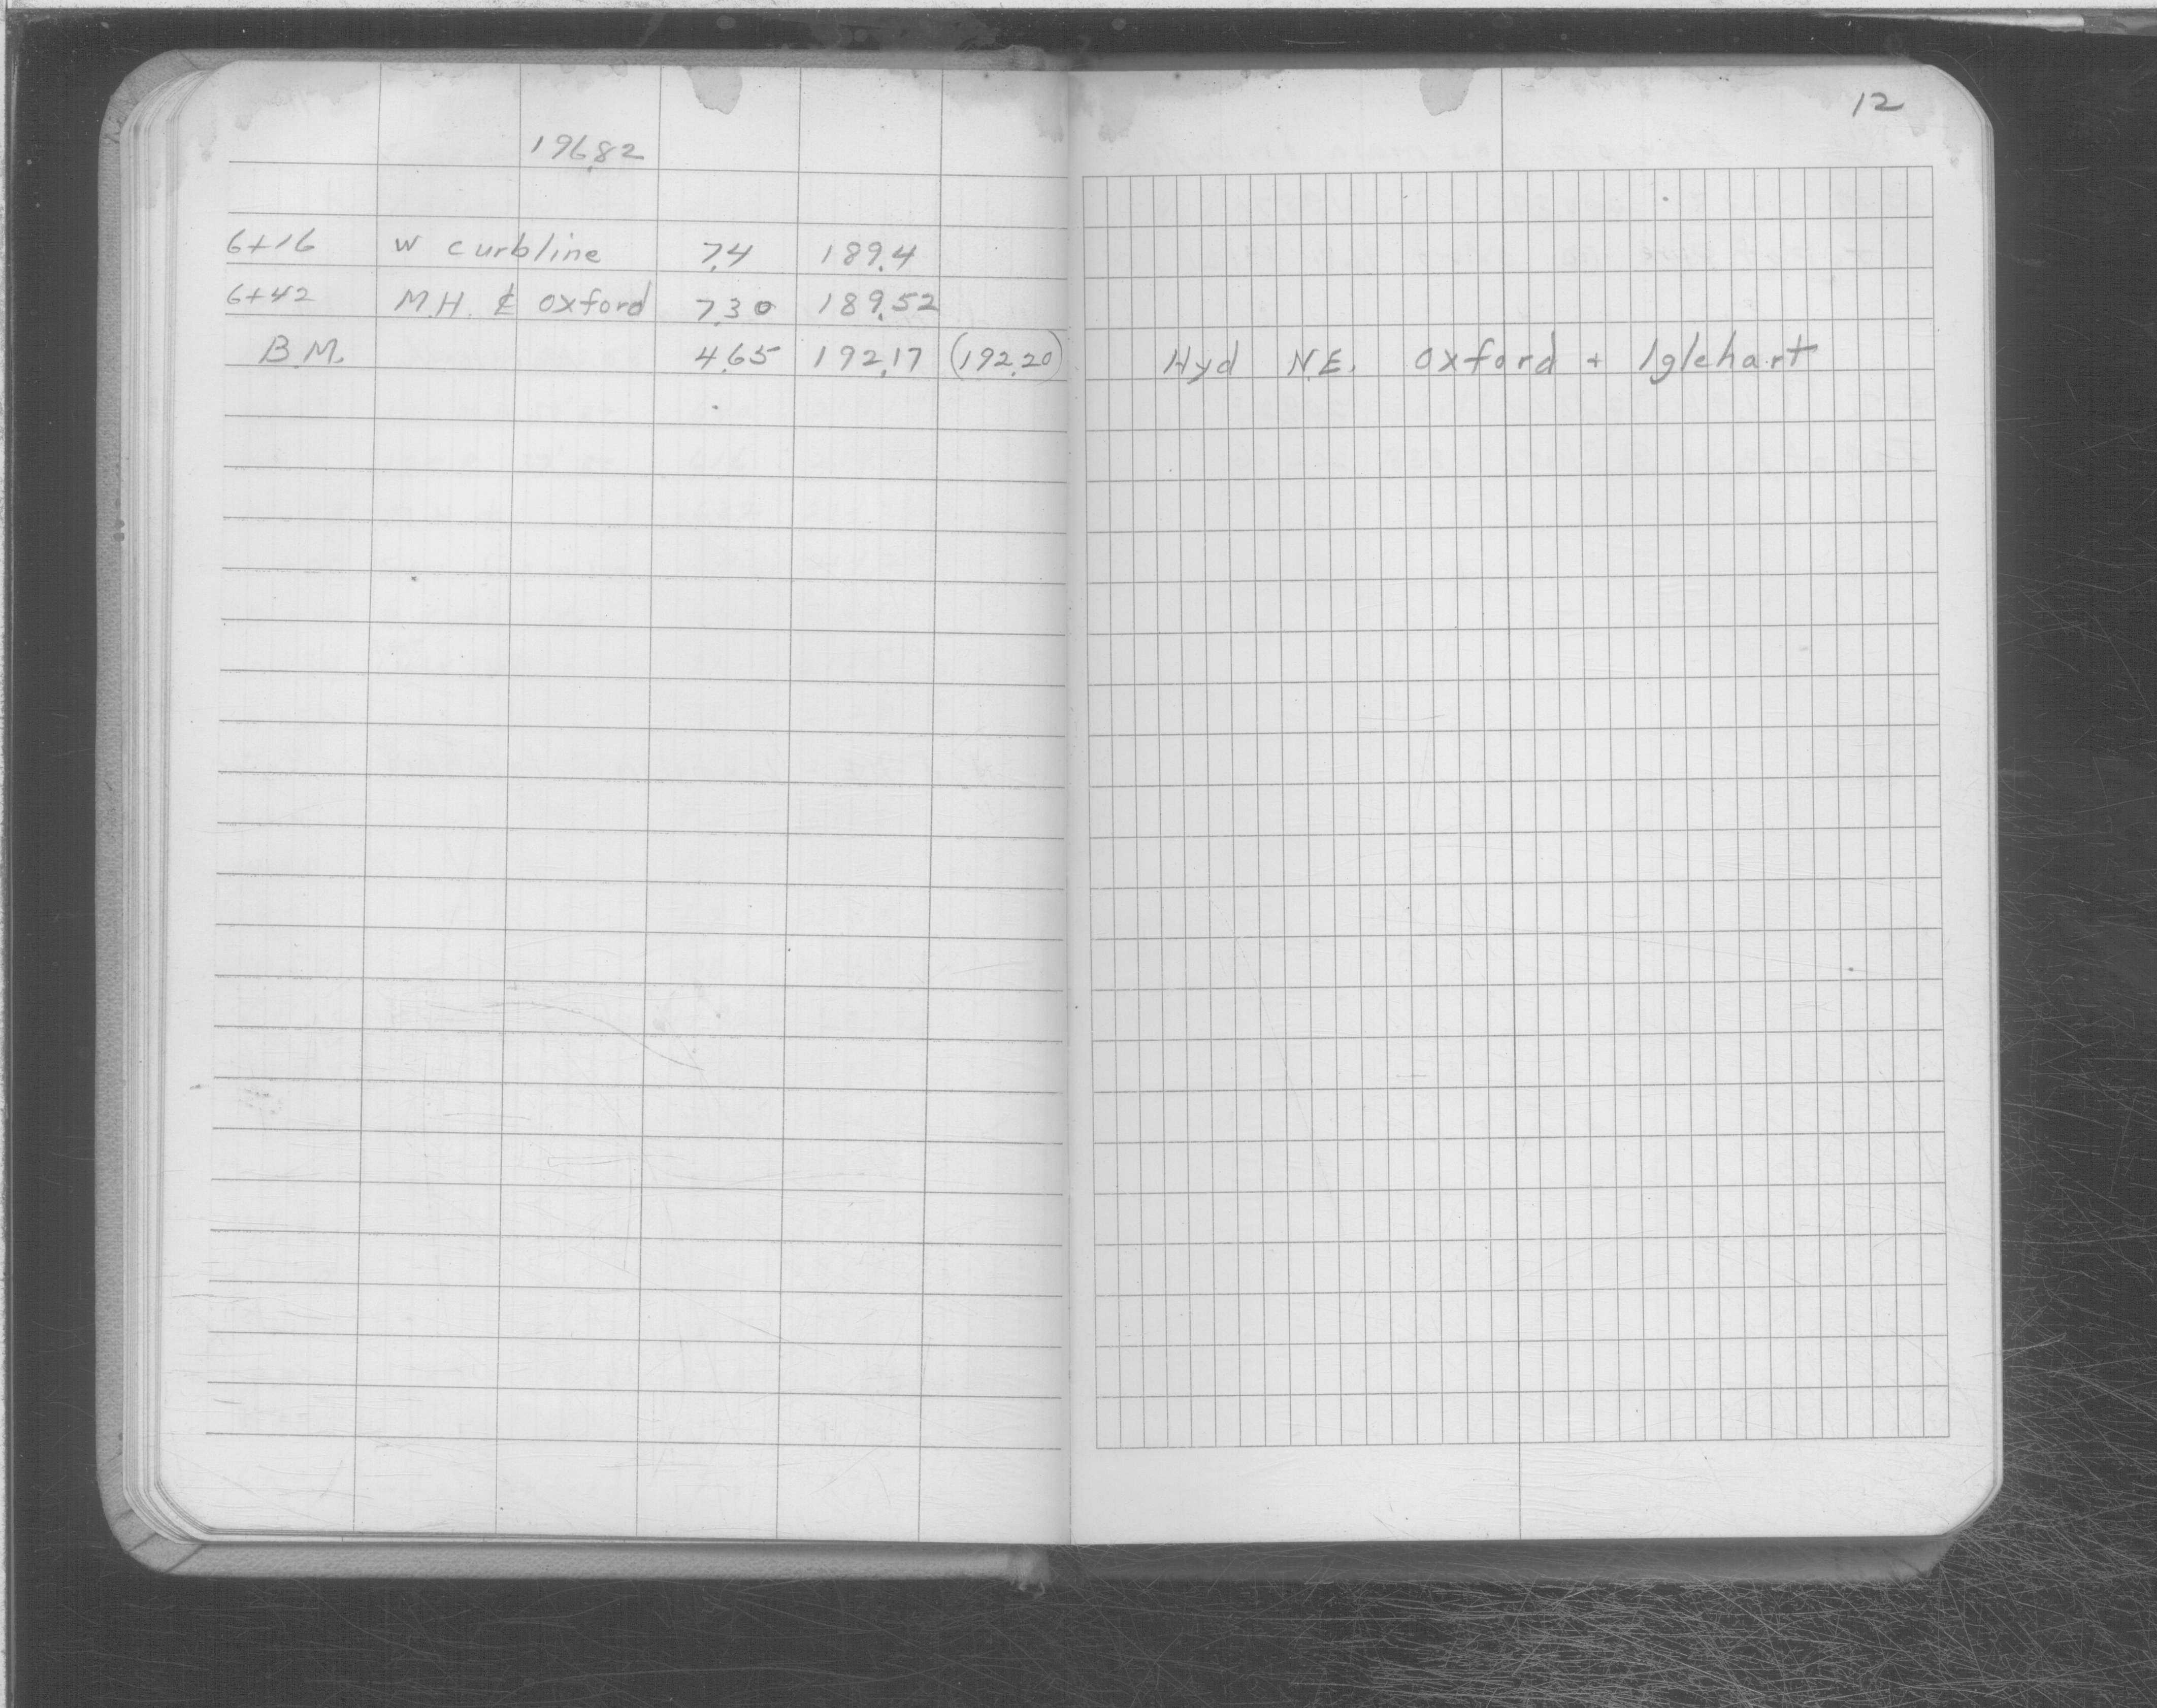 12
196.82
6+16 W curbline 7.4 189.4
6+42 M.H. ₵ Oxford 7.30 189.52
B.M. 4.65 192.17 (192.20) Hyd N.E. Oxford + Iglehart